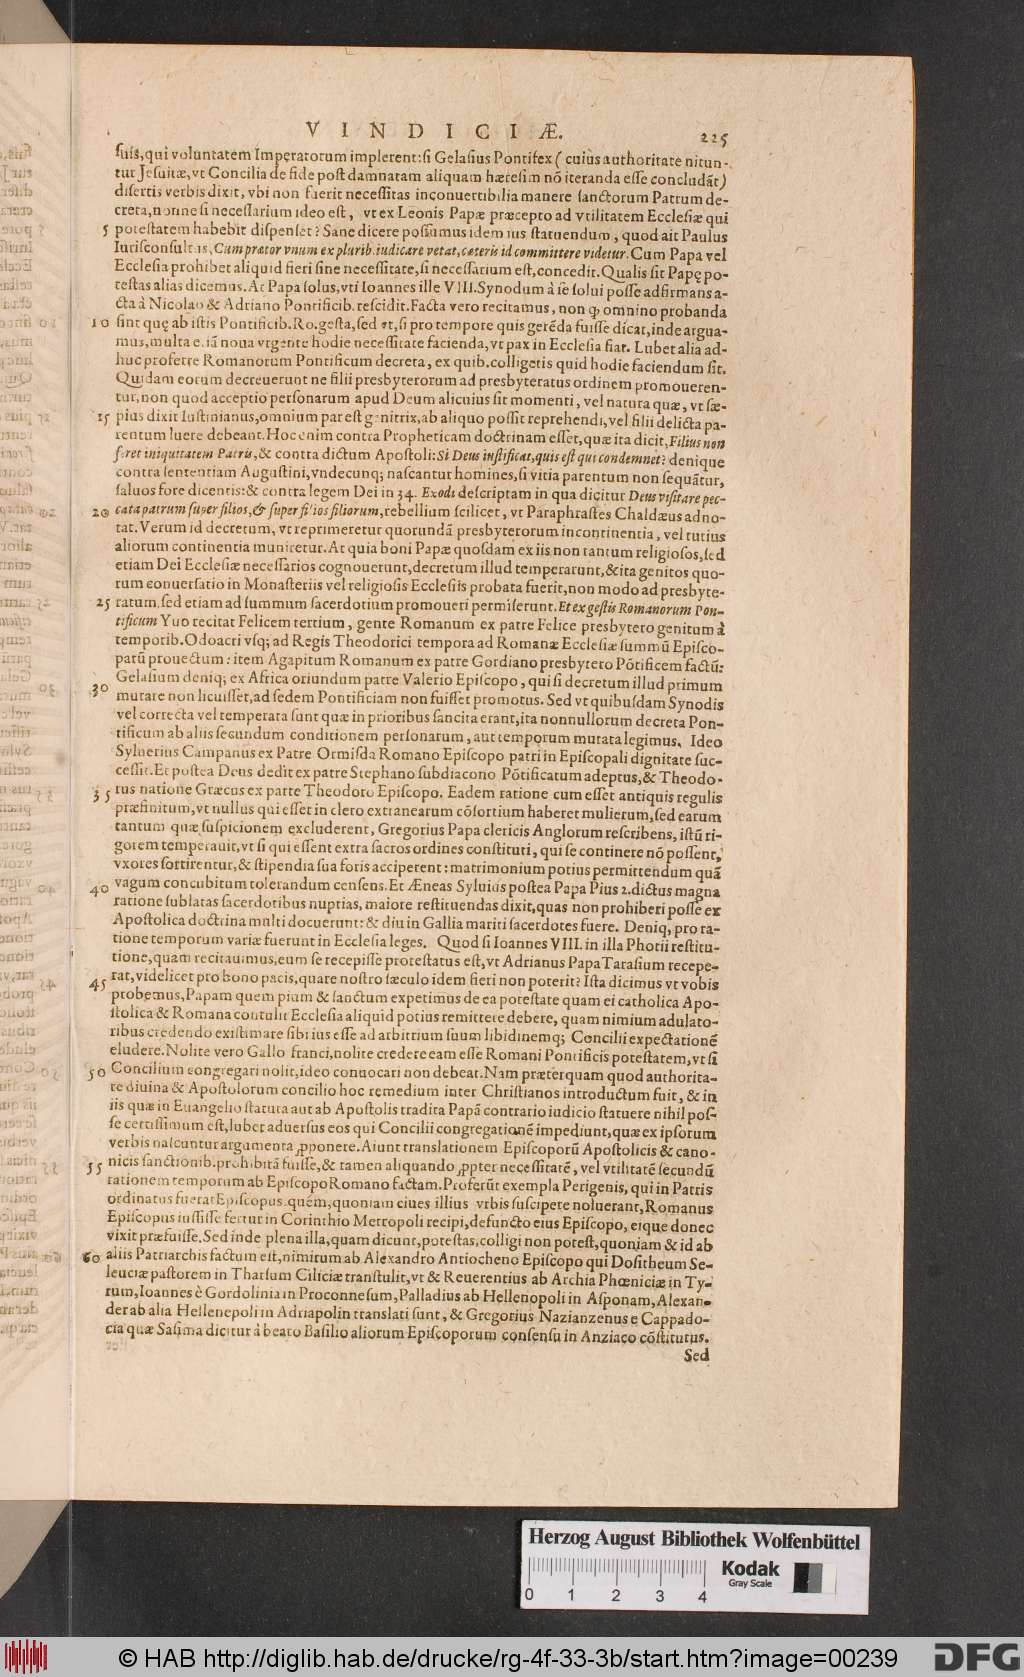 VINDICIÆ. 225
ſuis, qui voluntatem Imperatorum implerent: ſi Gelaſius Pontifex (cuius authoritate nitun-
tur Jeſuitæ, vt Concilia de fide poſt damnatam aliquam hæreſim nō iteranda eſſe concludāt)
diſertis verbis dixit, vbi non fuerit neceſſitas inconuertibilia manere ſanctorum Patrum de-
creta, nonne ſi neceſſarium ideo eſt, vt ex Leonis Papæ præcepto ad vtilitatem Eccleſiæ qui
5 poteſtatem habebit diſpenſet? Sane dicere poſſumus idem ius ſtatuendum, quod ait Paulus
Iuriſconſultus, Cum prætor vnum ex plurib. iudicare vetat, cæteris id committere videtur. Cum Papa vel
Eccleſia prohibet aliquid fieri ſine neceſſitate, ſi neceſſarium eſt, concedit. Qualis ſit Papę po-
teſtas alias dicemus. At Papa ſolus, vti Ioannes ille VIII. Synodum à ſe ſolui poſſe adfirmans a-
cta à Nicolao & Adriano Pontificib. reſcidit. Facta vero recitamus, non ꝙ omnino probanda
10 ſint quę ab iſtis Pontificib. Ro. geſta, ſed vt, ſi pro tempore quis gerēda fuiſſe dicat, inde argua-
mus, multa e. iā noua vrgente hodie neceſſitate facienda, vt pax in Eccleſia fiat. Lubet alia ad-
huc proferre Romanorum Pontificum decreta, ex quib. colligetis quid hodie faciendum ſit.
Quidam eorum decreuerunt ne filii presbyterorum ad presbyteratus ordinem promoueren-
tur, non quod acceptio perſonarum apud Deum alicuius ſit momenti, vel natura quæ, vt ſæ-
15 pius dixit Iuſtinianus, omnium par eſt genitrix, ab aliquo poſſit reprehendi, vel filii delicta pa-
rentum luere debeant. Hoc enim contra Propheticam doctrinam eſſet, quæ ita dicit, Filius non
feret iniquitatem Patris, & contra dictum Apoſtoli: Si Deus iuſtificat, quis eſt qui condemnet? denique
contra ſententiam Auguſtini, vndecunq; naſcantur homines, ſi vitia parentum non ſequātur,
ſaluos fore dicentis: & contra legem Dei in 34. Exodi deſcriptam in qua dicitur Deus viſitare pec-
20 cata patrum ſuper filios, & ſuper filios filiorum, rebellium ſcilicet, vt Paraphraſtes Chaldæus adno-
tat. Verum id decretum, vt reprimeretur quorundā presbyterorum incontinentia, vel tutius
aliorum continentia muniretur. At quia boni Papæ quoſdam ex iis non tantum religioſos, ſed
etiam Dei Eccleſiæ neceſſarios cognouerunt, decretum illud temperarunt, & ita genitos quo-
rum conuerſatio in Monaſteriis vel religioſis Eccleſiis probata fuerit, non modo ad presbyte-
25 ratum, ſed etiam ad ſummum ſacerdotium promoueri permiſerunt. Et ex geſtis Romanorum Pon-
tificum Yuo recitat Felicem tertium, gente Romanum ex patre Felice presbytero genitum à
temporib. Odoacri vſq; ad Regis Theodorici tempora ad Romanæ Eccleſiæ ſummū Epiſco-
patū prouectum: item Agapitum Romanum ex patre Gordiano presbytero Pōtificem factū:
Gelaſium deniq; ex Africa oriundum patre Valerio Epiſcopo, qui ſi decretum illud primum
30 mutare non licuiſſet, ad ſedem Pontificiam non fuiſſet promotus. Sed vt quibuſdam Synodis
vel correcta vel temperata ſunt quæ in prioribus ſancita erant, ita nonnullorum decreta Pon-
tificum ab aliis ſecundum conditionem perſonarum, aut temporum mutata legimus. Ideo
Syluerius Campanus ex Patre Ormiſda Romano Epiſcopo patri in Epiſcopali dignitate ſuc-
ceſſit. Et poſtea Deus dedit ex patre Stephano ſubdiacono Pōtificatum adeptus, & Theodo-
35 rus natione Græcus ex parte Theodoro Epiſcopo. Eadem ratione cum eſſet antiquis regulis
præfinitum, vt nullus qui eſſet in clero extranearum cōſortium haberet mulierum, ſed earum
tantum quæ ſuſpicionem excluderent, Gregorius Papa clericis Anglorum reſcribens, iſtū ri-
gorem temperauit, vt ſi qui eſſent extra ſacros ordines conſtituti, qui ſe continere nō poſſent,
vxores ſortirentur, & ſtipendia ſua foris acciperent: matrimonium potius permittendum quā
40 vagum concubitum tolerandum cenſens. Et Æneas Syluius poſtea Papa Pius 2. dictus magna
ratione ſublatas ſacerdotibus nuptias, maiore reſtituendas dixit, quas non prohiberi poſſe ex
Apoſtolica doctrina multi docuerunt: & diu in Gallia mariti ſacerdotes fuere. Deniq, pro ra-
tione temporum variæ fuerunt in Eccleſia leges. Quod ſi Ioannes VIII. in illa Photii reſtitu-
tione, quam recitauimus, eum ſe recepiſſe proteſtatus eſt, vt Adrianus Papa Taraſium recepe-
45 rat, videlicet pro bono pacis, quare noſtro ſæculo idem fieri non poterit? Iſta dicimus vt vobis
probemus, Papam quem pium & ſanctum expetimus de ea poteſtate quam ei catholica Apo-
ſtolica & Romana contulit Eccleſia aliquid potius remittere debere, quam nimium adulato-
ribus credendo exiſtimare ſibi ius eſſe ad arbitrium ſuum libidinemq; Concilii expectationē
eludere. Nolite vero Gallo franci, nolite credere eam eſſe Romani Pontificis poteſtatem, vt ſi
50 Concilium congregari nolit, ideo conuocari non debeat. Nam præterquam quod authorita-
te diuina & Apoſtolorum concilio hoc remedium inter Chriſtianos introductum fuit, & in
iis quæ in Euangelio ſtatuta aut ab Apoſtolis tradita Papā contrario iudicio ſtatuere nihil poſ-
ſe certiſſimum eſt, lubet aduerſus eos qui Concilii congregationē impediunt, quæ ex ipſorum
verbis naſcuntur argumenta ꝓponere. Aiunt translationem Epiſcoporū Apoſtolicis & cano-
55 nicis ſanctionib. prohibitā fuiſſe, & tamen aliquando ꝓpter neceſſitatē, vel vtilitatē ſecundū
rationem temporum ab Epiſcopo Romano factam. Proferūt exempla Perigenis, qui in Patris
ordinatus fuerat Epiſcopus. quem, quoniam ciues illius vrbis ſuſcipere noluerant, Romanus
Epiſcopus iuſſiſſe fertur in Corinthio Metropoli recipi, defuncto eius Epiſcopo, eique donec
vixit præfuiſſe. Sed inde plena illa, quam dicunt, poteſtas, colligi non poteſt, quoniam & id ab
60 aliis Patriarchis factum eſt, nimirum ab Alexandro Antiocheno Epiſcopo qui Doſitheum Se-
leuciæ paſtorem in Tharſum Ciliciæ tranſtulit, vt & Reuerentius ab Archia Phœniciæ in Ty-
rum, Ioannes è Gordolinia in Proconneſum, Palladius ab Hellenopoli in Aſponam, Alexan-
der ab alia Hellenepoli in Adriapolin translati ſunt, & Gregorius Nazianzenus e Cappado-
cia quæ Saſima dicitur à beato Baſilio aliorum Epiſcoporum conſenſu in Anziaco cōſtitutus.
Sed
Herzog August Bibliothek Wolfenbüttel
0 1 2 3 4
Kodak
Gray Scale
© HAB http://diglib.hab.de/drucke/rg-4f-33-3b/start.htm?image=00239
DFG